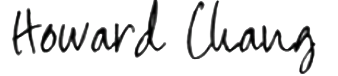 Howard Chang